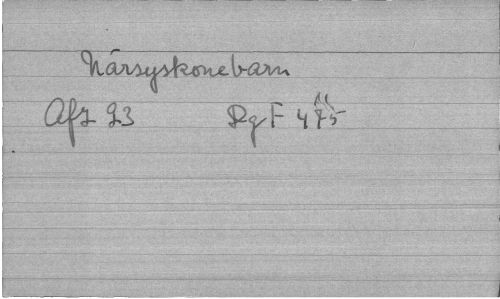 Närsyskonebarn
Afz 93 Rg F 475